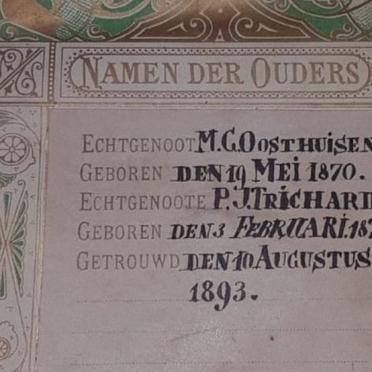 NAMEN DER OUDERS
ECHTGENOOT M.C. OOSTHUISEN
GEBOREN DEN 19 MEI 1870.
ECHTGENOOTE P.J. TRICHARD
GEBOREN DEN 3 FEBRUARI 187
GETROUWD DEN 10 AUGUSTUS
1893.